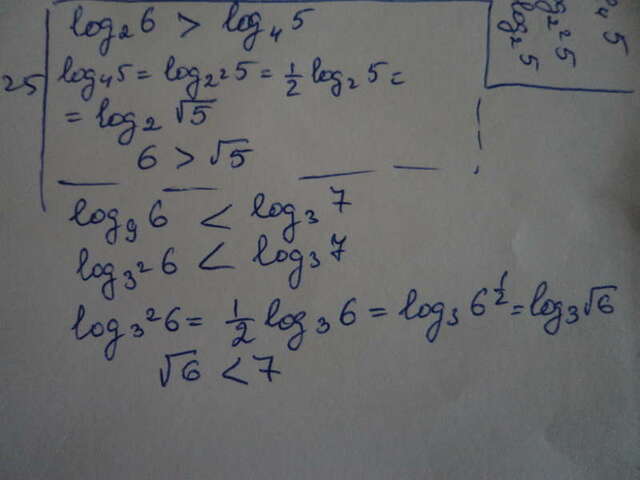 log₂6 > log₄5
25 log₄5 = log₂²5 = 1/2 log₂5 =
= log₂√5
6 > √5
log₉6 < log₃7
log₃²6 < log₃7
log₃²6 = 1/2 log₃6 = log₃6^1/2 = log₃√6
√6 < 7
₄5
log₂²5
log₂5